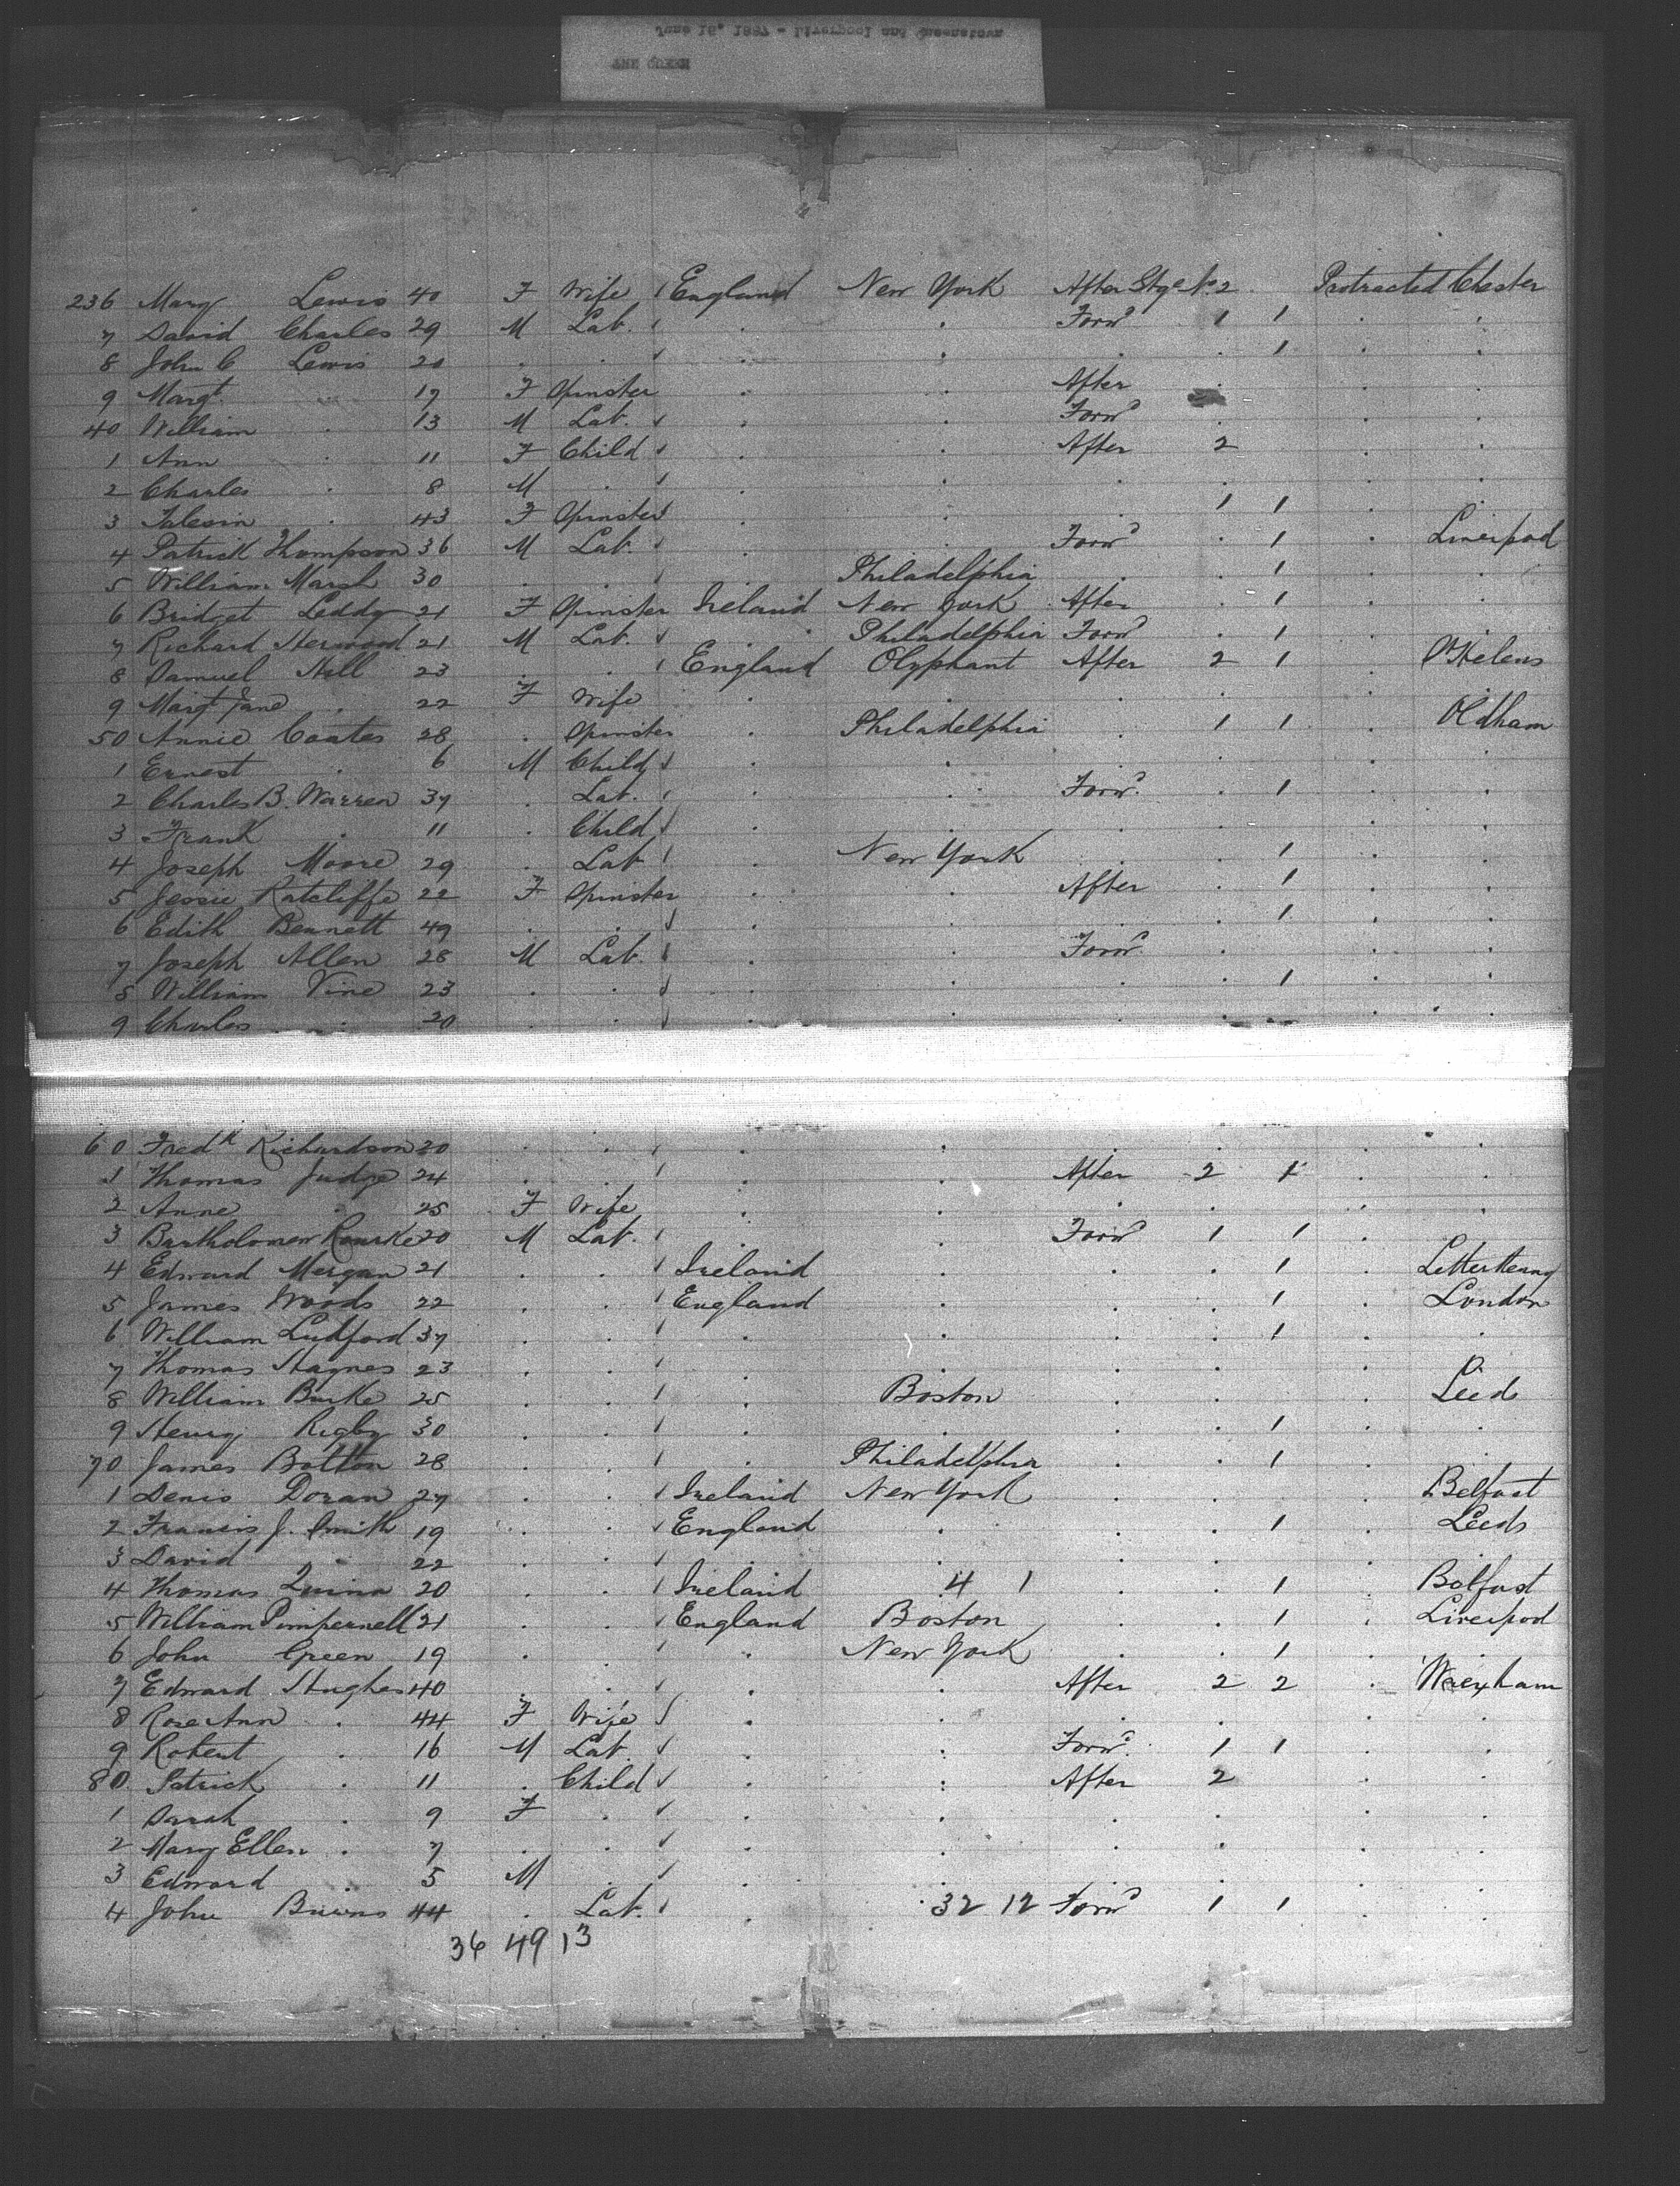 THE QUEEN
June 16, 1887 - Liverpool and Queenstown
236 Mary Lewis 40 F Wife England New York After Stge No 2 Protracted Chester
7 David Charles 29 M Lab. . . Forwd 1 1 . .
8 John C Lewis 20 . . . . . . 1 . .
9 Margt. " 19 F Spinster . . After . . .
40 William . 13 M Lab. . . Forwd . . .
1 Ann . 11 F Child . . After 2 . .
2 Charles . 8 M . . . . . . .
3 . 43 F Spinster . . . 1 1 . .
4 Patrick Thompson 36 M Lab. . . Forwd . 1 . Liverpool
5 William Marsh 30 . . . Philadelphia . . 1 . .
6 Bridget Leddy 21 F Spinster Ireland New York After . 1 . .
7 Richard 21 M Lab. . Philadelphia Forwd . 1 . .
8 Samuel Hill 23 . . England Olyphant After 2 1 . St Helens
9 Margt Jane . 22 F Wife . . . . . .
50 Annie Coates 28 . Spinster . Philadelphia . 1 1 . Oldham
1 Ernest . 6 M Child . . . . . .
2 Charles B. Warren 37 . Lab. . . Forwd. . 1 . .
3 Frank . 11 . Child . . . . . .
4 Joseph Moore 29 . Lab . New York . . 1 . .
5 Jessie Ratcliffe 22 F Spinster . . After . 1 . .
6 Edith Bennett 49 . . . . . . 1 . .
7 Joseph Allen 28 M Lab. . . Forwd. . . .
8 William Vine 23 . . . . . . 1 . .
9 Charles . 20 . . . . . . . .
60 Fredk Richardson 20 . . . . . . . .
1 Thomas Judge 24 . . . . After 2 1 . .
2 Anne " 25 F Wife . . . . . .
3 Bartholomew Rourke 20 M Lab. . . Forwd 1 1 . .
4 Edward Mergan 21 . . Ireland . . . 1 . Letterkenny
5 James Woods 22 . . England . . . 1 . London
6 William Ludford 37 . . . . . . 1 . .
7 Thomas Haynes 23 . . . . . . . .
8 William Burke 25 . . . Boston . . . Leeds
9 Henry Rigby 30 . . . . . . 1 . .
70 James Bolton 28 . . . Philadelphia . . 1 . .
1 Denis Doran 27 . . Ireland New York . . . Belfast
2 Francis J. Smith 19 . . England . . . 1 . Leeds
3 David " 22 . . . . . . . .
4 Thomas Quinn 20 . . Ireland 4 1 . . 1 . Belfast
5 William Pimpernell 21 . . England Boston . . 1 . Liverpool
6 John Green 19 . . . New York . . 1 . .
7 Edward Hughes 40 . . . . After 2 2 . Wrexham
8 Rose Ann . 44 F Wife . . . . . .
9 Robert . 16 M Lab. . . Forwd. 1 1 . .
80 Patrick . 11 . Child . . After 2 . .
1 Sarah . 9 F . . . . . . .
2 Mary Ellen . 7 . . . . . . . .
3 Edward . 5 M . . . . . . .
4 John 44 . Lab. . 32 12 Forwd 1 1 . .
36 49 13